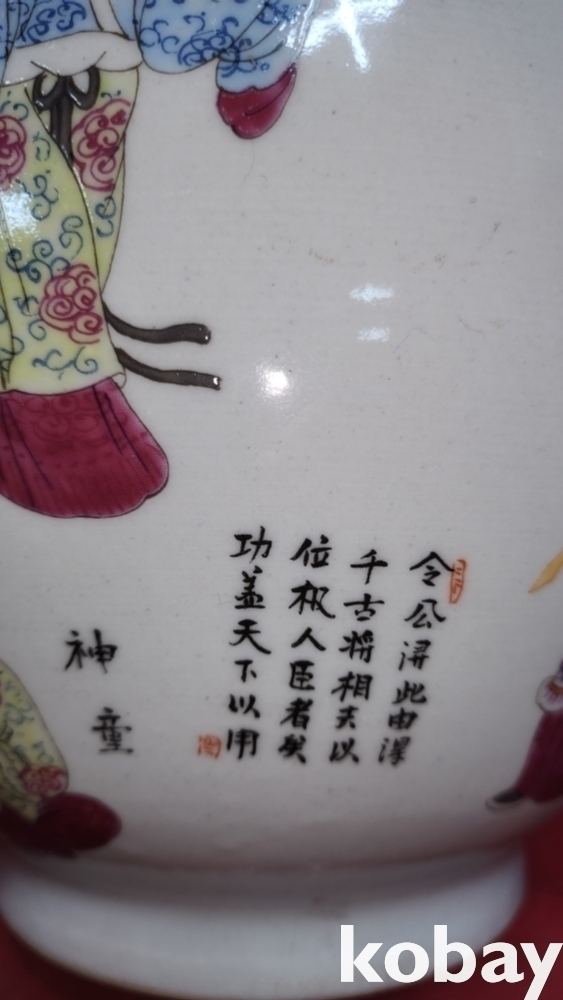 令公浔此由淂
千古将相夫以
位极人臣者矣
功盖天下以用
神童
kobay